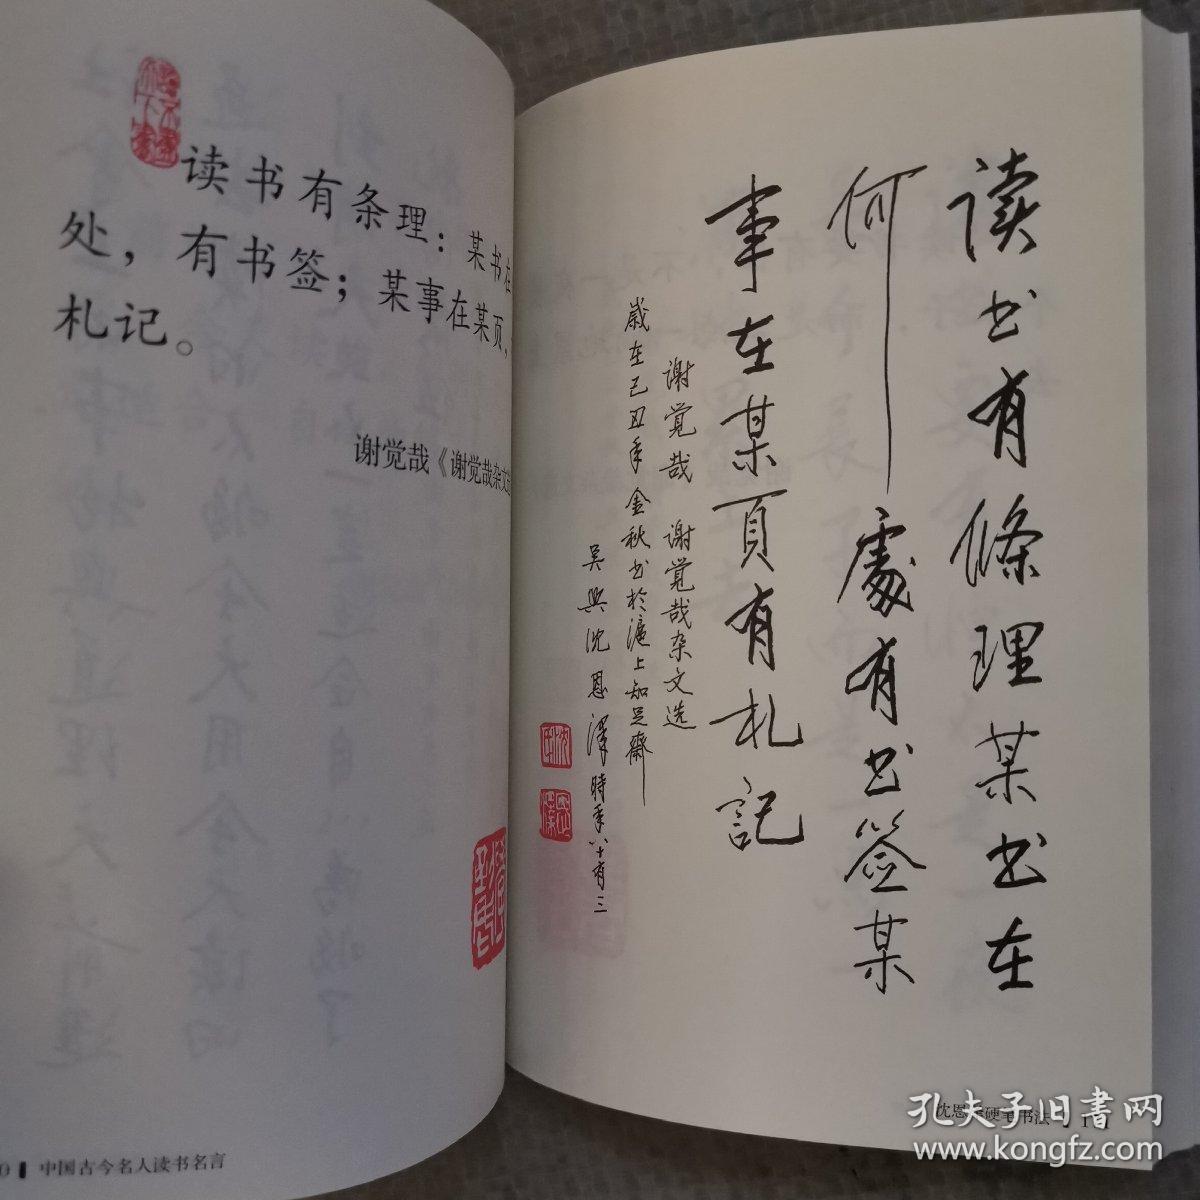 读书有条理：某书在
处，有书签；某事在某页，
札记。
谢觉哉《谢觉哉杂文选
中国古今名人读书名言
读书有條理某书在
何處有书签某
事在某頁有札記
谢觉哉 谢觉哉杂文选
歲在己丑年金秋书於滬上知足齋
吴興沈恩澤時年八十有三
硬笔书法
孔夫子旧書网
www.kongfz.com